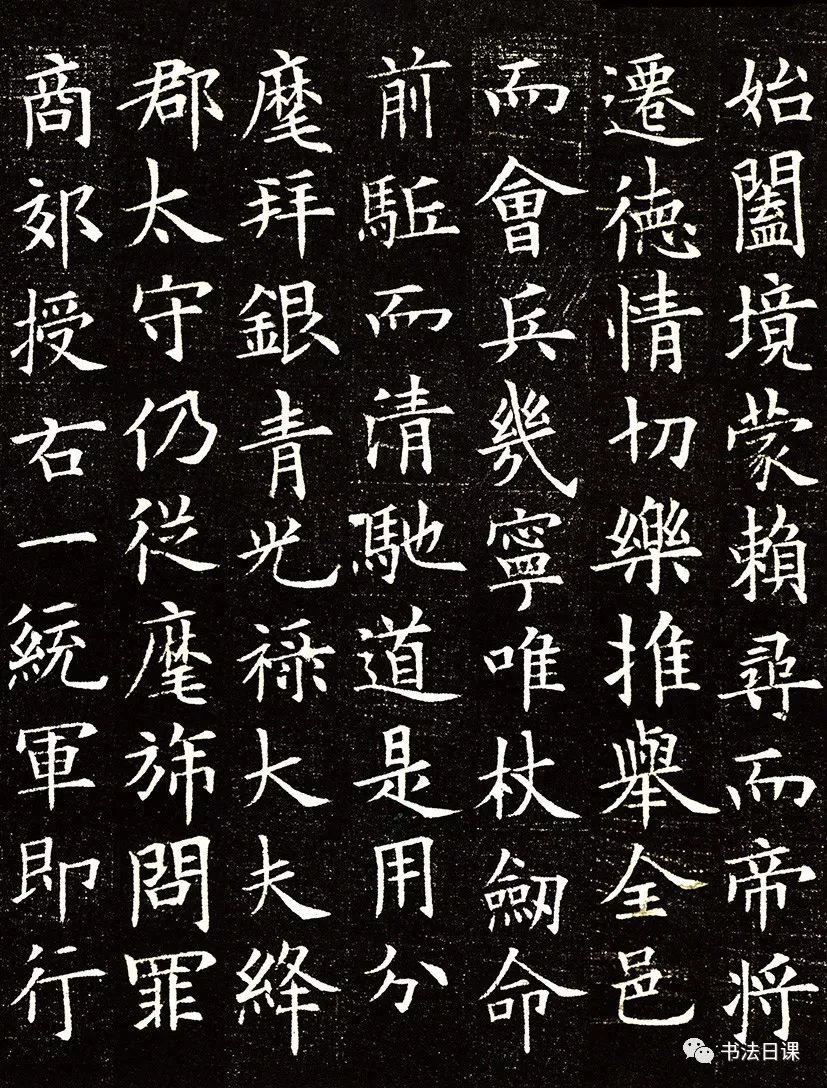 始闔境蒙賴尋而帝将
遷徳情切樂推舉全邑
而會兵幾寧唯杖劒命
前駈而清馳道是用分
麾拜銀青光禄大夫絳
郡太守仍従麾旆問罪
商郊授右一統軍即行
书法日课